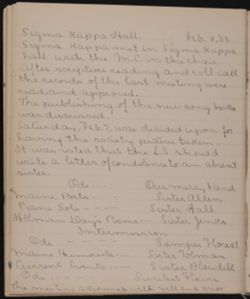 Sigma Kappa Hall. Feb. 4, '03
Sigma Kappa met in Sigma Kappa
hall with the M.C. in the chair.
After scripture reading and roll-call
the records of the last meeting were
read and approved.
The publishing of the new song books
was discussed.
Saturday, Feb. 7, was decided upon for
having the society picture taken.
It was voted that the C.S. should
write a letter of condolence to an absent
sister.
Ode - - - Our merry band
Maine Poets - - Sister Allen
Piano Solo - - - Sister Hall
Holman Day's Poems - - Sister Jones
Intermission
Ode - - - - Sempre Floreat
Maine Humorists - - Sister Tolman
Current Events - - - Sister Blaisdell
Ode
The meeting adjourned with yell and grip.